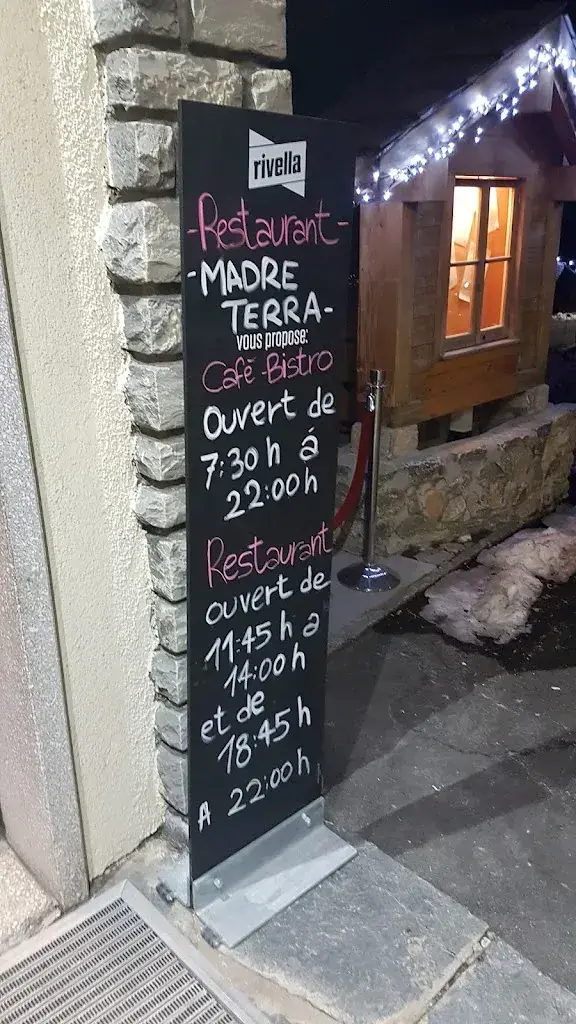 rivella
-Restaurant-
-MADRE
TERRA-
vous propose:
Café-Bistro
Ouvert de
7:30h á
22:00h
Restaurant
ouvert de
11:45h a
14:00h
et de
18:45h
A 22:00h